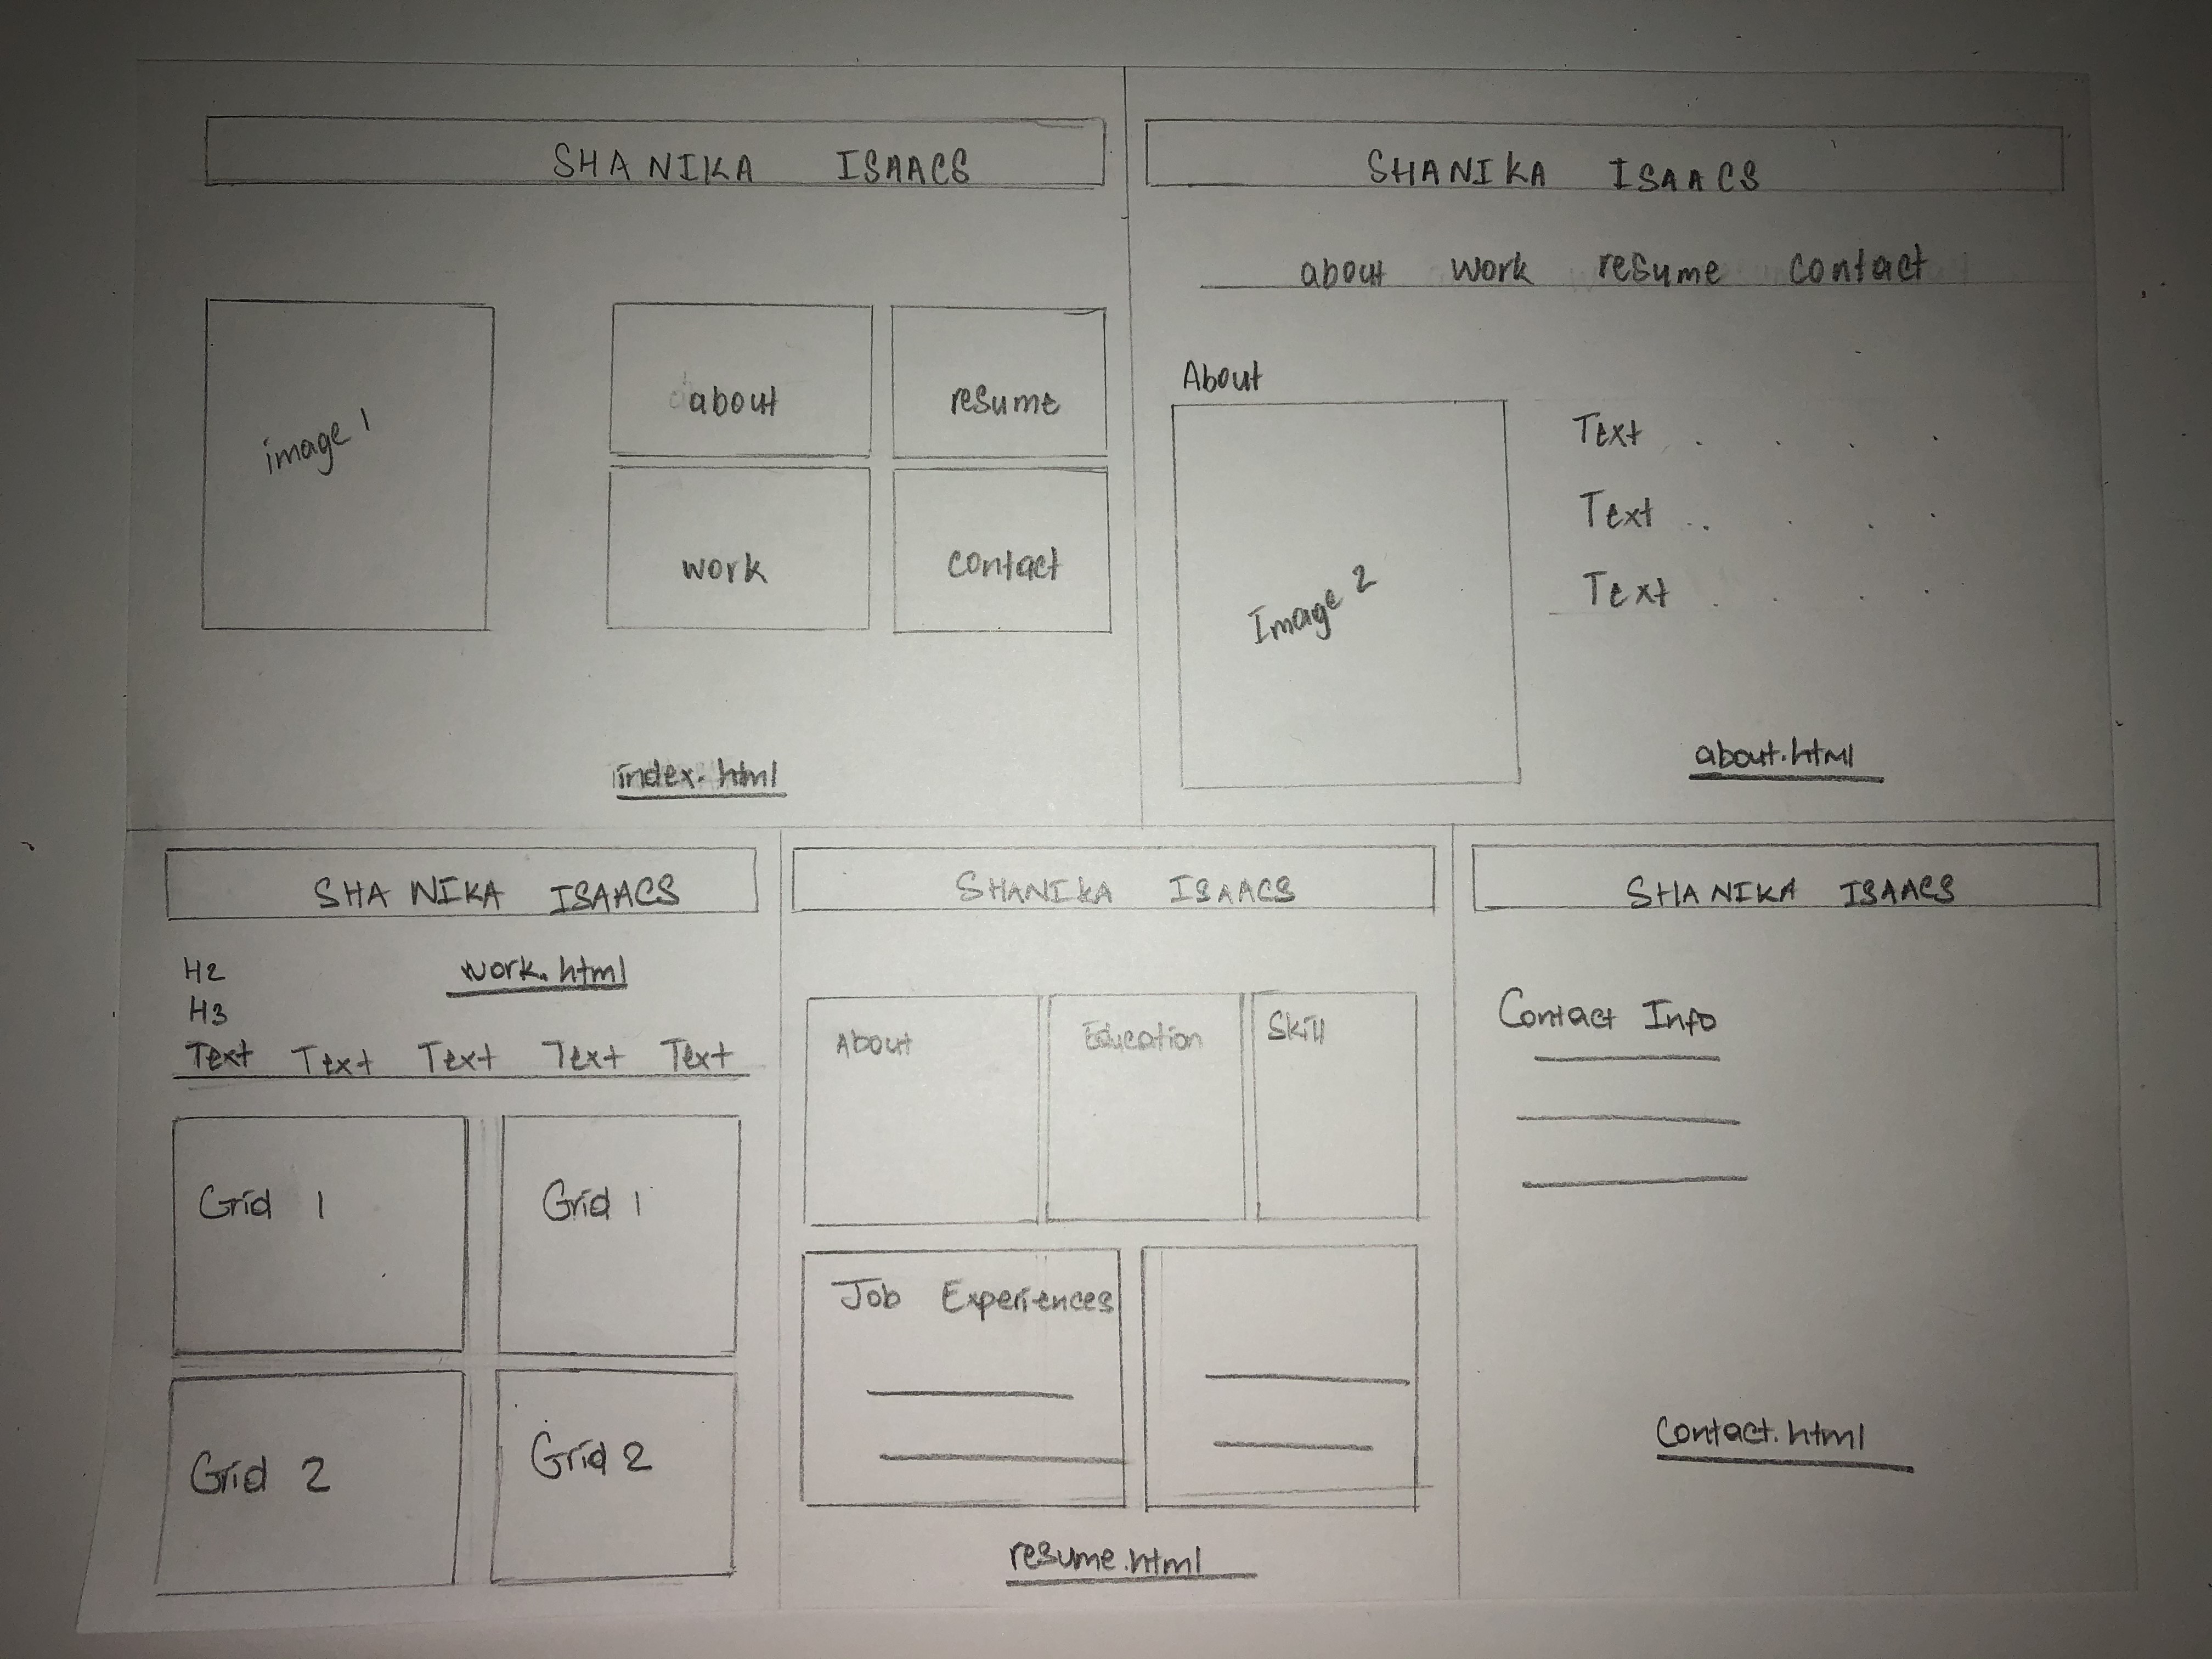 SHANIKA ISAACS
image 1
about
resume
work
contact
index.html
SHANIKA ISAACS
about work resume contact
About
Image 2
Text
Text
Text
about.html
SHANIKA ISAACS
H2
work.html
H3
Text Text Text Text Text
Grid 1
Grid 1
Grid 2
Grid 2
SHANIKA ISAACS
About
Education
Skill
Job Experiences
resume.html
SHANIKA ISAACS
Contact Info
Contact.html